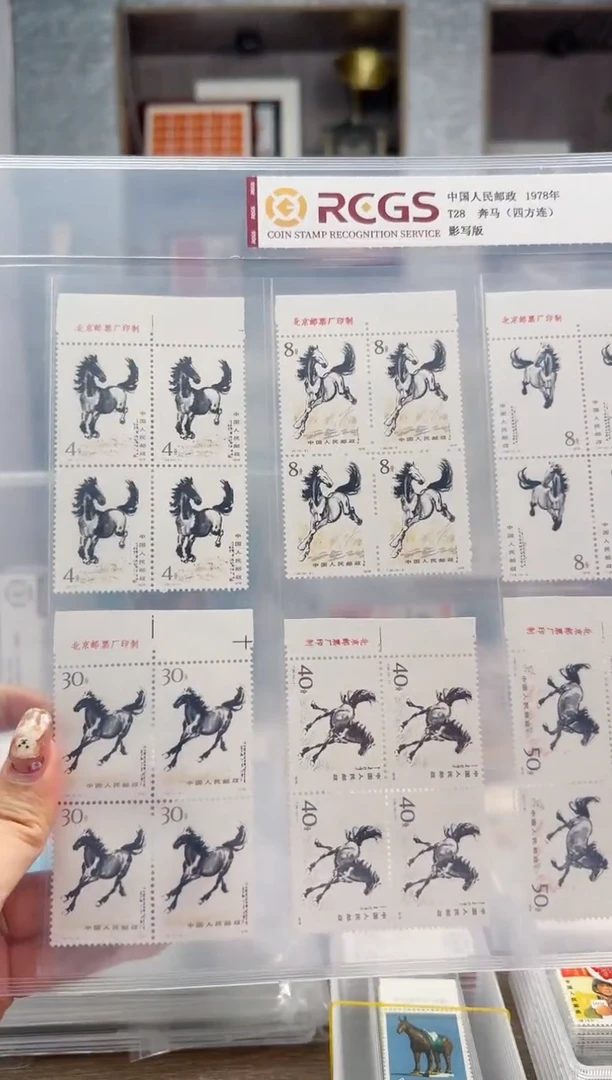 RCGS
COIN STAMP RECOGNITION SERVICE
中国人民邮政 1978年
T28 奔马（四方连）
影写版
北京邮票厂印制
北京邮票厂印制
北京邮票厂印制
4分
4分
中国人民邮政
中国人民邮政
4分
4分
中国人民邮政
中国人民邮政
8分
8分
中国人民邮政
中国人民邮政
8分
8分
中国人民邮政
中国人民邮政
8分
中国人民邮政
8分
中国人民邮政
北京邮票厂印制
30分
30分
中国人民邮政
中国人民邮政
30分
30分
中国人民邮政
中国人民邮政
北京邮票厂印制
40分
40分
中国人民邮政
中国人民邮政
40分
40分
中国人民邮政
中国人民邮政
北京邮票厂印制
50分
中国人民邮政
50分
中国人民邮政